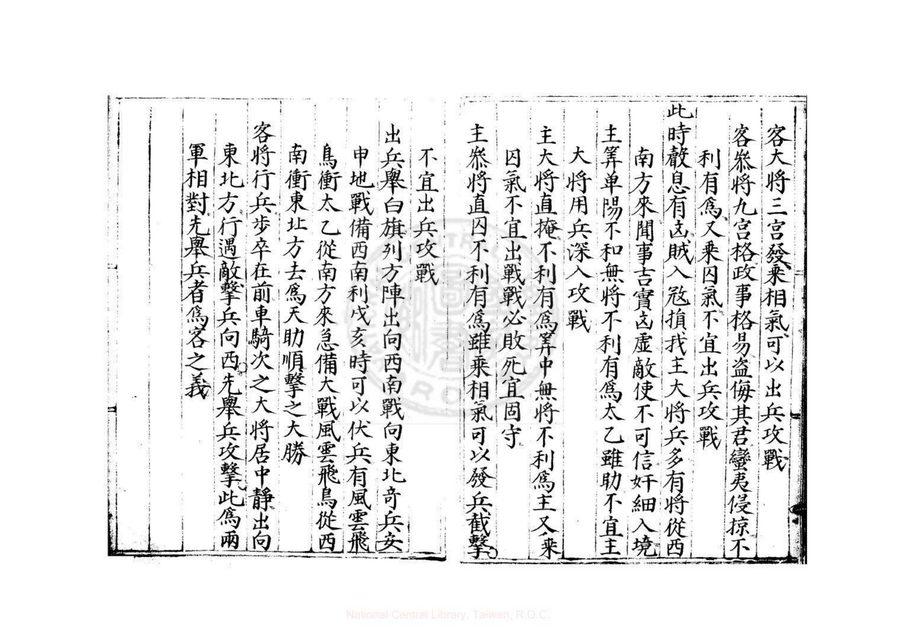 客大將三宮發乘相氣可以出兵攻戰
客叅將九宮格政事格易盗侮其君蠻夷侵掠不
利有爲又乘囚氣不宜出兵攻戰
此時聲息有凶賊入㓂損找主大將兵多有將從西
南方來聞事吉實凶虛敵使不可信奸細入境
主筭单陽不和無將不利有爲太乙雖助不宜主
大將用兵深入攻戰
主大將直掩不利有爲筭中無將不利爲主又乘
囚氣不宜出戰戰必敗死宜固守
主叅將直囚不利有爲雖乘相氣可以發兵截擊
不宜出兵攻戰
出兵舉白旗列方陣出向西南戰向東北竒兵安
申地戰備西南利戊亥時可以伏兵有風雲飛
鳥衝太乙從南方來急備大戰風雲飛鳥從西
南衝東北方去爲天助順擊之大勝
客將行兵步卒在前車騎次之大將居中靜出向
東北方行遇敵擊兵向西先舉兵攻擊此爲兩
軍相對先舉兵者爲客之義
National Central Library, Taiwan, R.O.C.